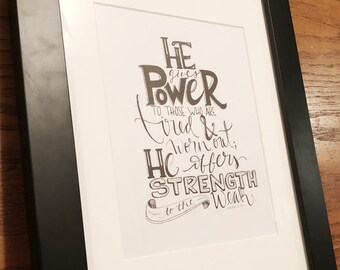 HE
gives
POWER
TO THOSE WHO ARE
tired &
worn out;
HE offers
STRENGTH
to the
weak.